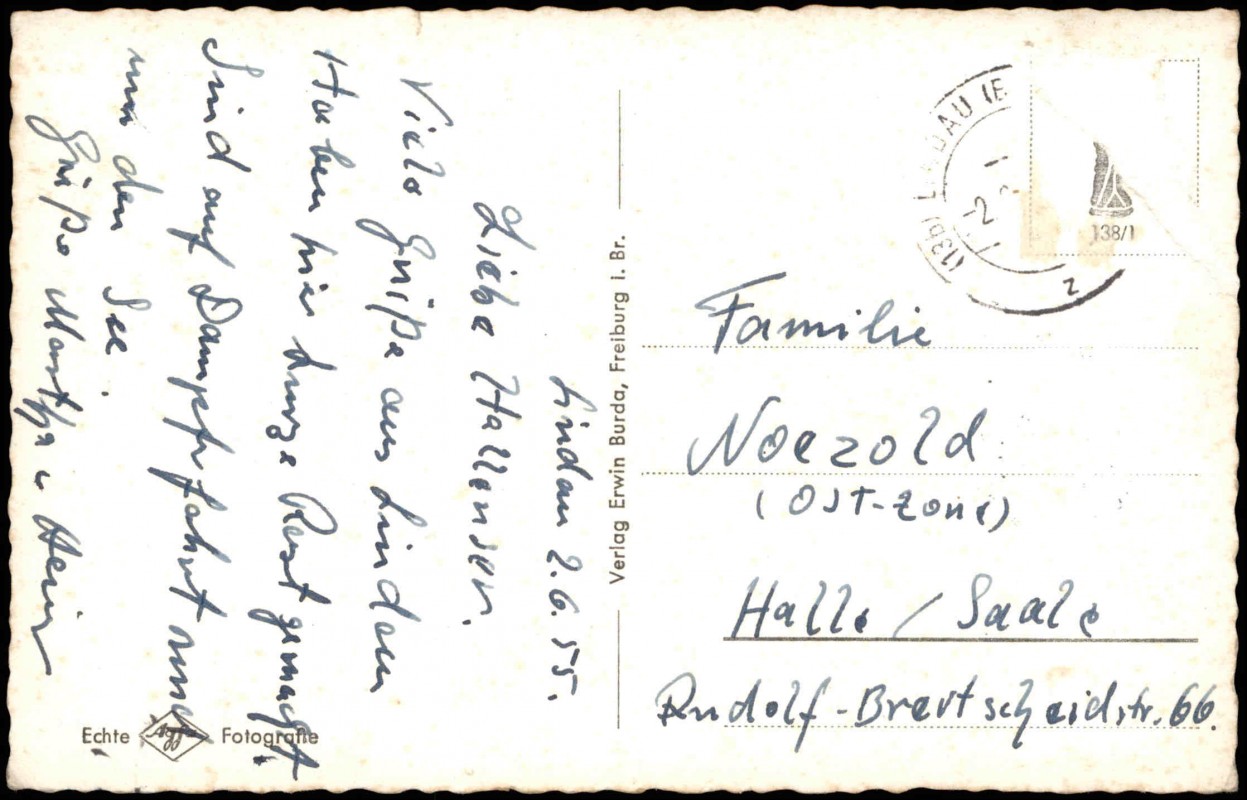 Lindau 2.6.55.
Liebe Hallenser.
Viele Grüße aus Lindau
Haben hier kurze Rast gemacht.
Sind auf Dampferfahrt rund
um den See.
Grüße Martha u. Hein
Verlag Erwin Burda, Freiburg i. Br.
Echte Agfa Fotografie
(13b) LINDAU (B
2
z
138/1
Familie
Noezold
(OST-Zone)
Halle / Saale
Rudolf-Breitscheidstr. 66.